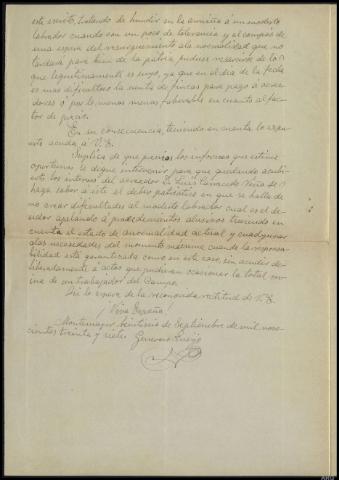 este escrito, tratando de hundir en la miseria á un modesto
labrador cuando con un poco de tolerancia y al compás de
una espera del resurgimiento a la normalidad que no
tardará para bien de la patria pudiese resarcirse de lo
que legitimamente es suyo, ya que en el dia de la fecha
es mas dificultoso la venta de fincas para pago á acree
dores ó por lo menos menos favorable en cuanto al fac
tor de precio.
En su consecuencia, teniendo en cuenta lo expu
esto acude á V.E.
Suplica de que previos los informes que estime
oportunos se digne intervenir para que quedando acubi
erto los intereses del acreedor D. Luis Carracedo
haga saber á este el deber patriótico en que se halla de
no crear dificultades al modesto labrador cual es el de
udor apelando á procedimientos abusivos teniendo en
cuenta el estado de anormalidad actual y coadyuvar
a las necesidades del momento maxime cuando la responsa
bilidad está garantizada como en este caso, sin acudir de
liberadamente a actos que pudieran ocasionar la total ru
ina de un trabajador del Campo.
Asi lo espera de la reconocida rectitud de V.E.
¡Viva España!
Montemayor, veintiseis de Septiembre de mil nove
cientos treinta y siete. Generoso